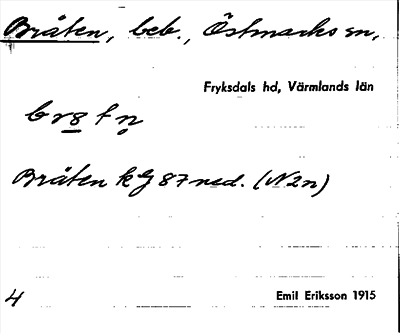 Bråten, beb., Östmarks sn,
Fryksdals hd, Värmlands län
Bråten kg 87 ned. (N2n)
4
Emil Eriksson 1915